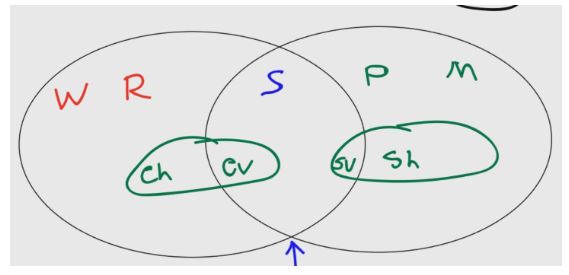 W R S P M
Ch CV SV Sh